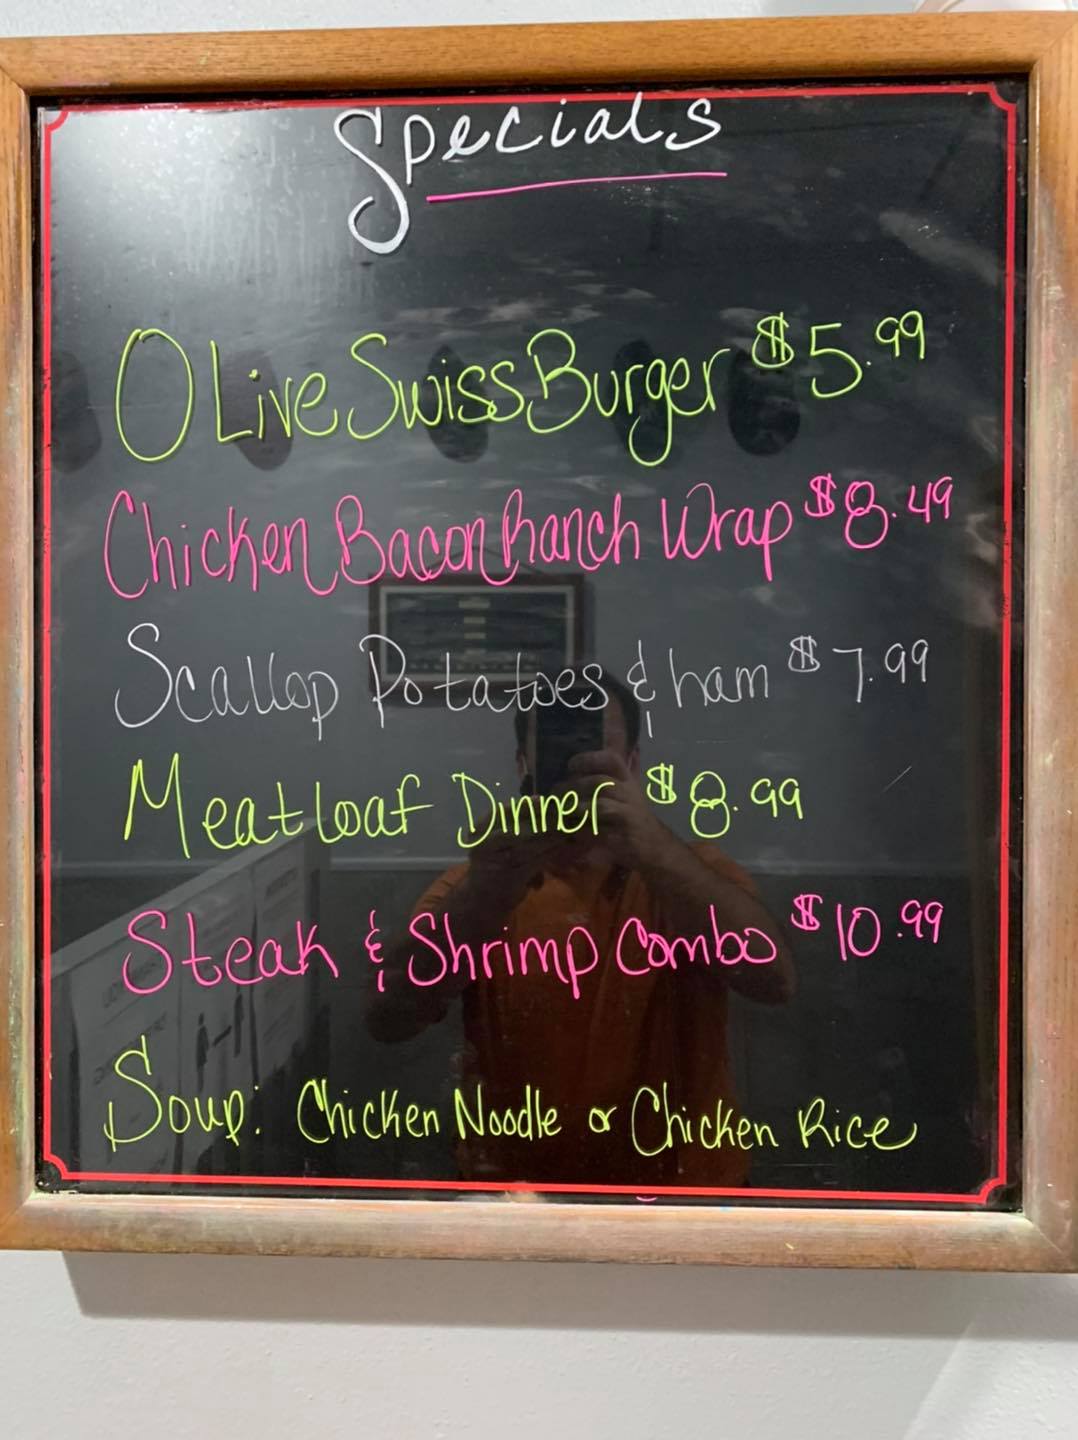 Specials
Olive Swiss Burger $5.99
Chicken Bacon Ranch Wrap $8.49
Scallop Potatoes & ham $7.99
Meatloaf Dinner $8.99
Steak & Shrimp Combo $10.99
Soup: Chicken Noodle or Chicken Rice